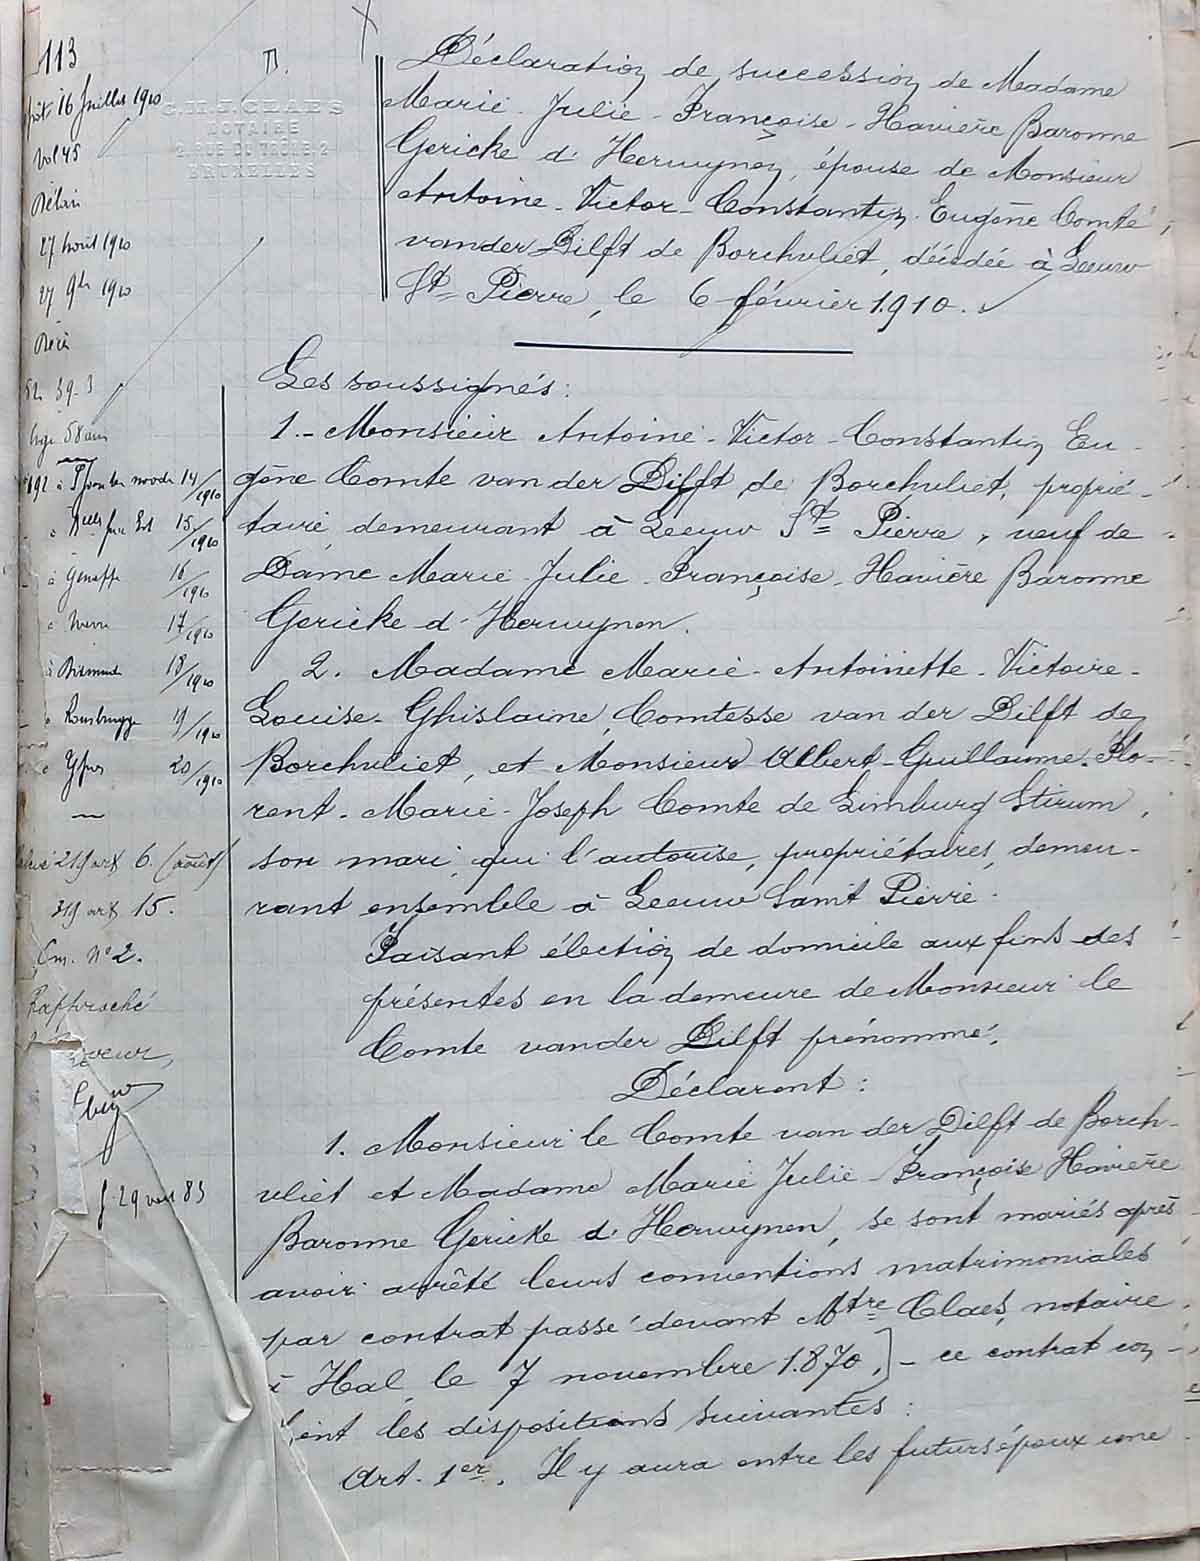 113
16 Juillet 1910
Vol 45
Délai
27 Août 1910
27 9bre 1910
58 ans
14/1910
15/1910
à Genappe 16/1910
17/1910
18/1910
19/1910
Ypres 20/1910
219 art 6. (août)
319 art 15.
Cm. N° 2.
f. 29 vol 83
G.M.J. CLAES
NOTAIRE
2, RUE DU TRÔNE, 2
BRUXELLES
Déclaration de succession de Madame
Marie-Julie-Françoise-Xavière Baronne
Gericke d'Herwynen, épouse de Monsieur
Antoine-Victor-Constantin-Eugène Comte
vander Dilft de Borchvliet, décédée à Leeuw
St= Pierre, le 6 février 1910.
Les soussignés:
1.- Monsieur Antoine-Victor-Constantin Eu-
gène Comte van der Dilft de Borchvliet, proprié-
taire demeurant à Leeuw St= Pierre, veuf de
Dame Marie-Julie-Françoise-Xavière Baronne
Gericke d'Herwynen.
2. Madame Marie-Antoinette-Victoire-
Louise-Ghislaine, Comtesse van der Dilft de
Borchvliet, et Monsieur Albert-Guillaume-Flo-
rent-Marie-Joseph Comte de Limburg Stirum,
son mari, qui l'autorise, propriétaires, demeu-
rant ensemble à Leeuw Saint Pierre.
Faisant élection de domicile aux fins des
présentes en la demeure de Monsieur le
Comte vander Dilft prénommé,
Déclarent:
1. Monsieur le Comte van der Dilft de Borch-
vliet et Madame Marie Julie-Françoise Xavière
Baronne Gericke d'Herwynen, se sont mariés après
avoir arrêté leurs conventions matrimoniales
par contrat passé devant Mtre= Claes, notaire
à Hal, le 7 novembre 1.870,]- ce contrat con-
tient les dispositions suivantes:
Art. 1er. Il y aura entre les futurs époux une